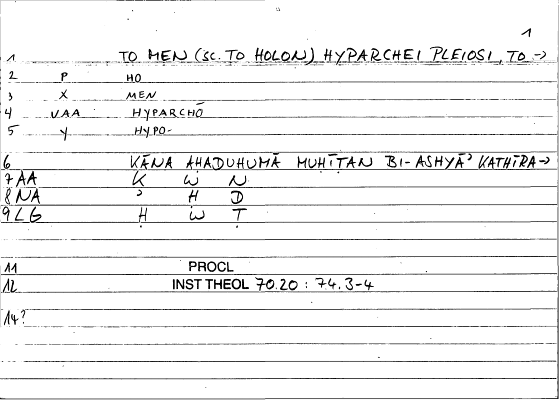 1
1 TO MEN (SC. TO HOLON) HYPARCHEI PLEIOSI, TO →
2 P HO
3 X MEN
4 VAA HYPARCHŌ
5 Y HYPO-
6 KĀNA AḤADUHUMĀ MUḤĪṬAN BI-ASHYĀʾ KATHĪRA →
7 AA K W N
8 NA ʾ Ḥ D
9 LG Ḥ W Ṭ
11 PROCL
12 INST THEOL 70.20 : 74.3-4
14?